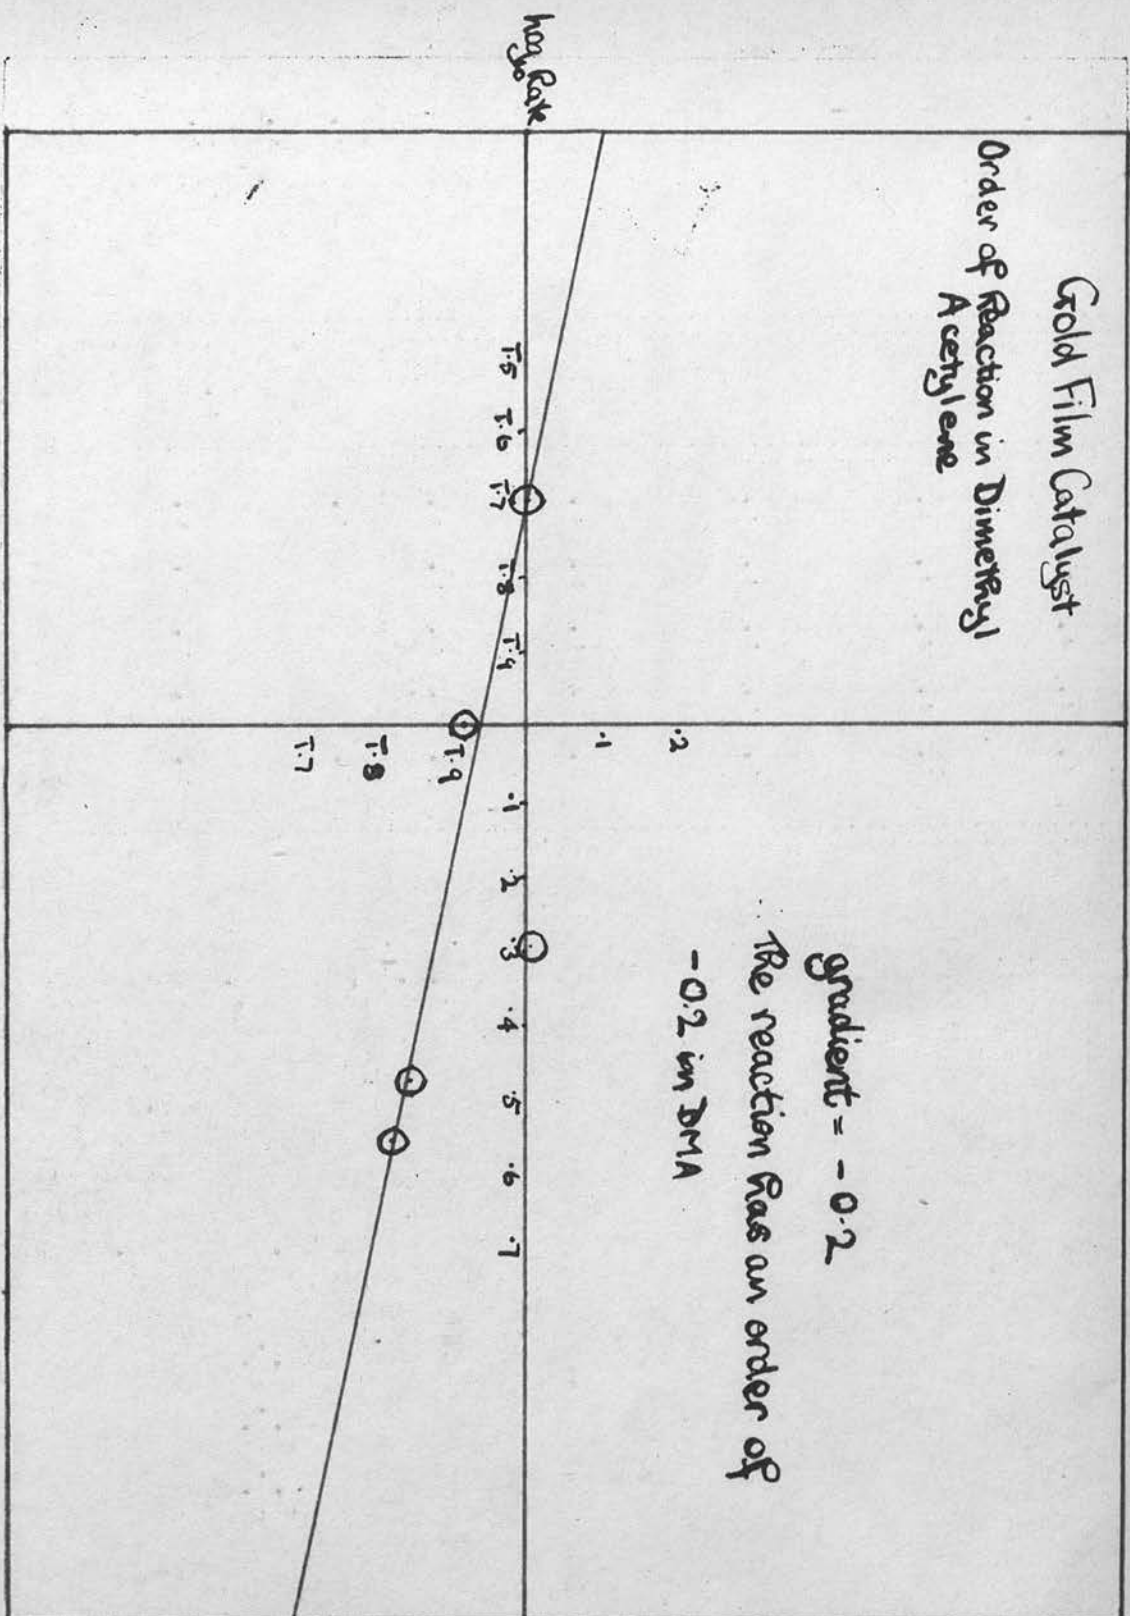 Gold Film Catalyst
Order of Reaction in Dimethyl
Acetylene
gradient = -0.2
∴ The reaction has an order of
-0.2 in DMA
Log₁₀ Rate
.2
.1
1̅.5 1̅.6 1̅.7 1̅.8 1̅.9 .1 .2 .3 .4 .5 .6 .7
1̅.9
1̅.8
1̅.7